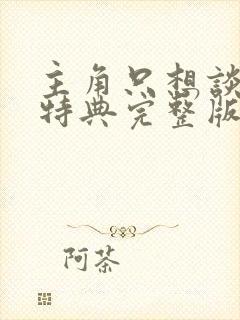 主角只想談
特典完整版
阿茶